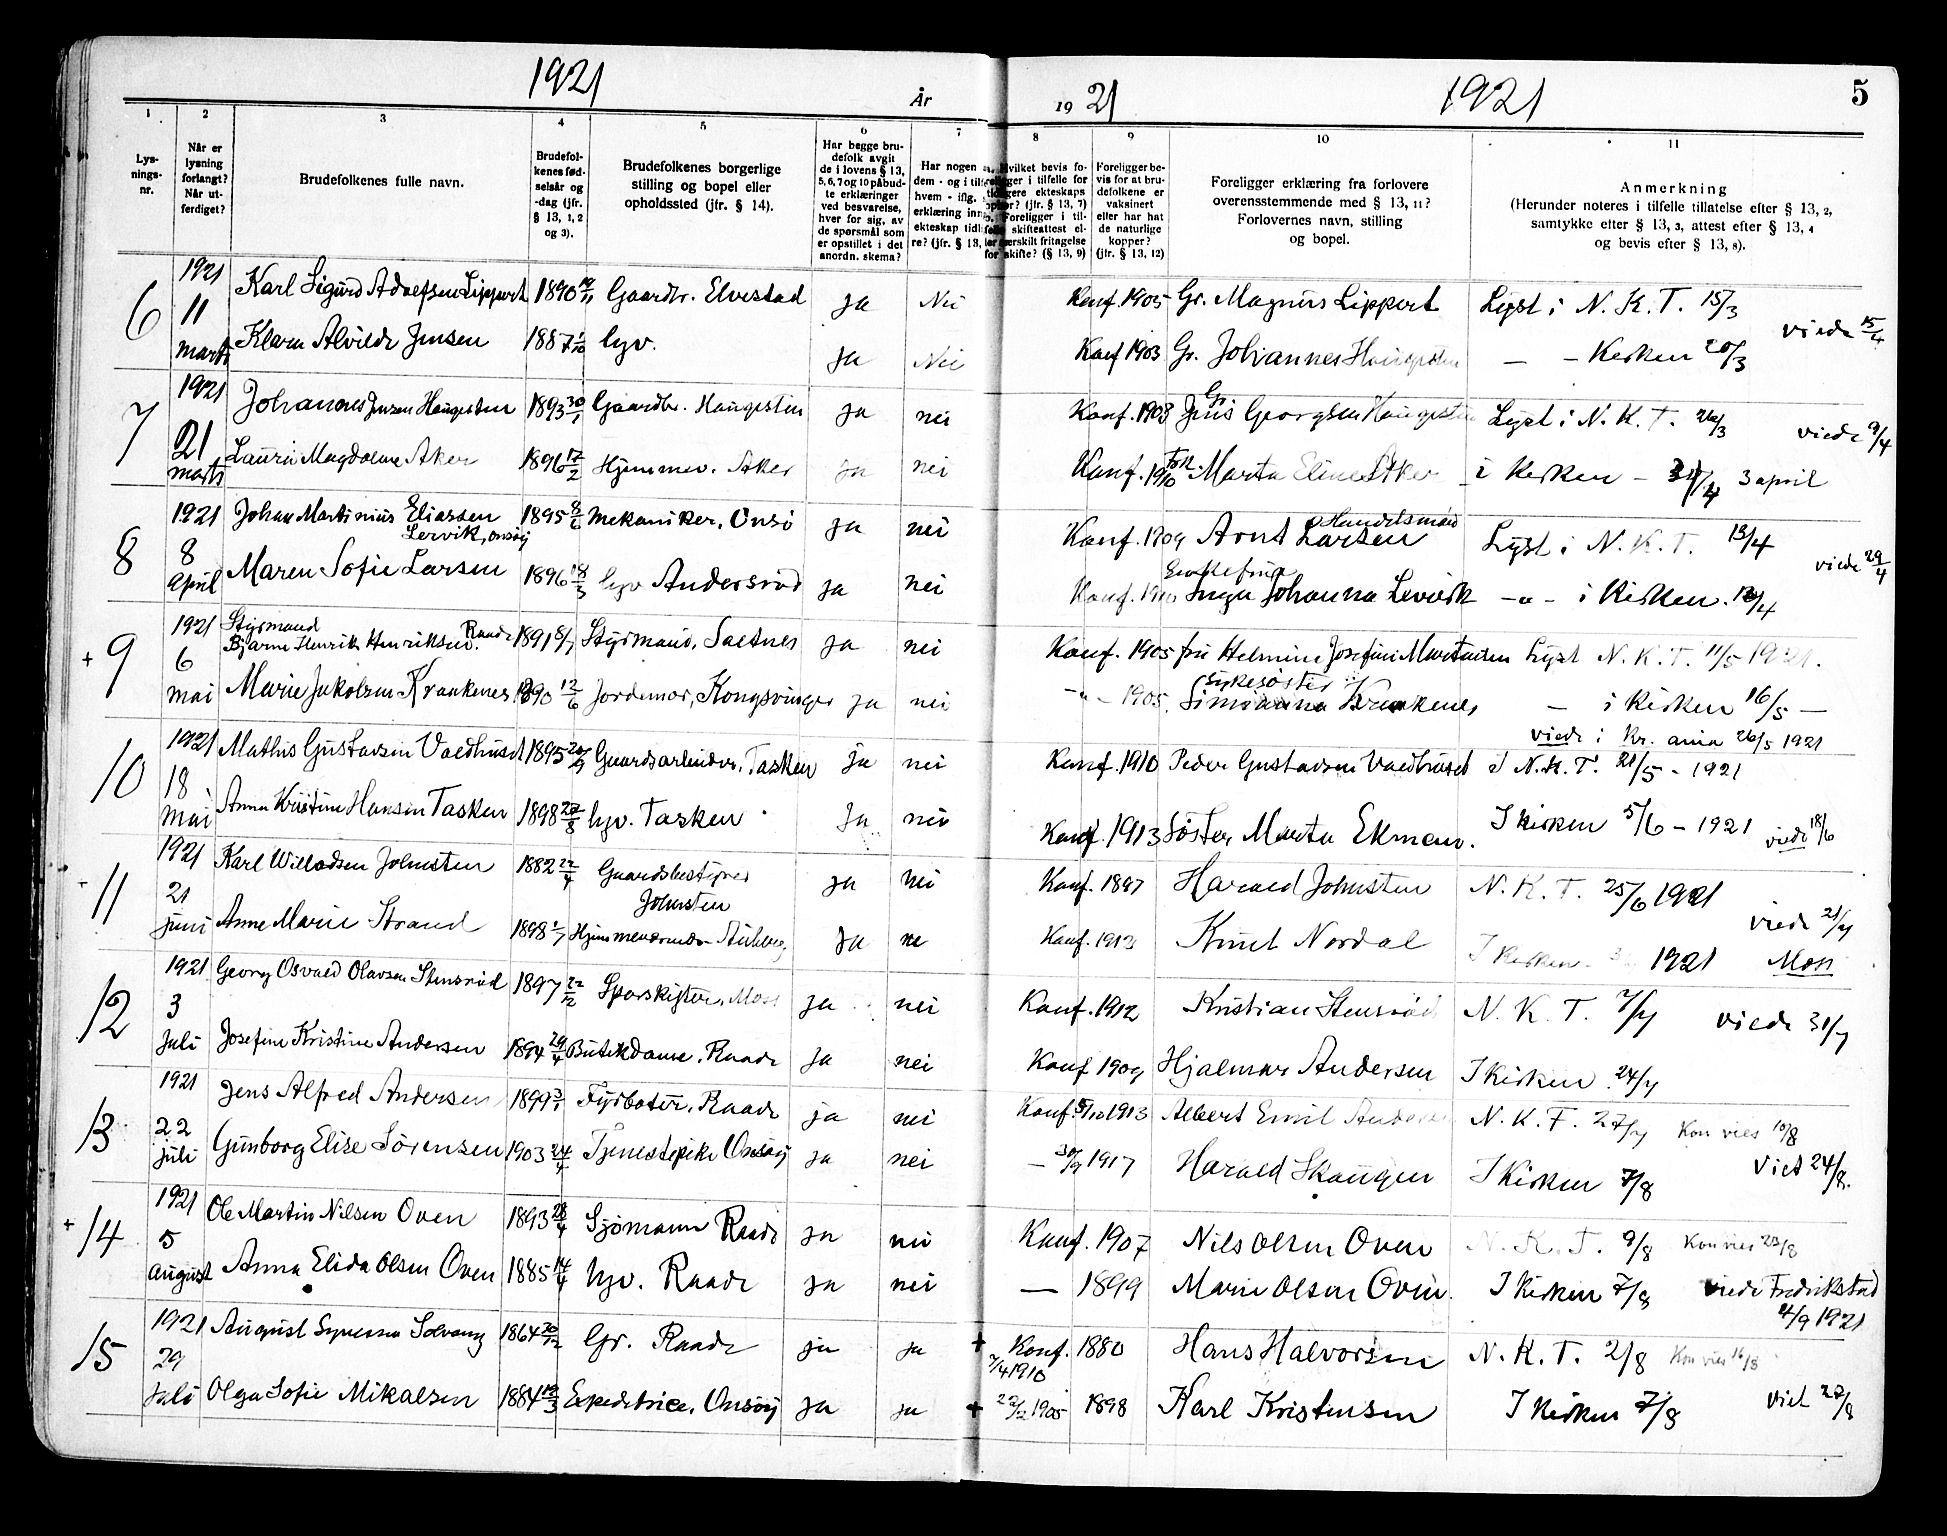 1921
År
19 21
1921
5
1
2
3
4
5
6
7
8
9
10
11
Lys-
nings-
nr.
Når er
lysning
forlangt?
Når ut-
ferdiget?
Brudefolkenes fulle navn.
Brudefol-
kenes fød-
selsår og
-dag (jfr.
§ 13, 1, 2
og 3).
Brudefolkenes borgerlige
stilling og bopel eller
opholdssted (jfr. § 14).
Har begge bru-
defolk avgit
de i lovens § 13,
5, 6, 7 og 10 påbud-
te erklæringer
ved besvarelse,
hver for sig, av
de spørsmål som
er opstillet i det
anordn. skema?
Har nogen a
dem - og i tilf
hvem - iflg.
erklæring inn
ekteskap tidl
re? (jfr. § 13,
Hvilket bevis fo-
religger i tilfelle for
tidligere ekteskaps
ophør? (jfr. § 13, 7)
Foreligger i til-
felle skifteattest el-
ler særskilt fritagelse
for skifte? (§ 13, 9)
Foreligger be-
vis for at bru-
defolkene er
vaksinert
eller har hat
de naturlige
kopper?
(jfr. § 13, 12)
Foreligger erklæring fra forlovere
overensstemmende med § 13, 11?
Forlovernes navn, stilling
og bopel.
Anmerkning
(Herunder noteres i tilfelle tillatelse efter § 13, 2,
samtykke efter § 13, 3, attest efter § 13, 4
og bevis efter § 13, 8).
6 1921 11 Karl Sigurd Adolfsen Lippert 1890 Gaardbr. Elvestad ja Nei Konf. 1905 Gr. Magnus Lippert Lyst i N. K. T. 15/3 viede 15/4
marts Klara Alvilde Jensen 1887 1/10 hjv. ja Nei Konf 1903 Gr. Johannes Haugesten — – Kirken 20/3
7 1921 21 Johannes Jensen Haugesten 1893 30/1 Gaardbr. Haugesten ja nei Konf. 1908 Gr. Jens Georgsen Haugesten Lyst i N. K. T. 26/3 viede 9/4
marts Laura Magdalene Aker 1896 17/2 Hjemmev. Aker ja nei Konf. 1910 Frk. Marta Eline Aker i Kirken – 3/4 3 april
8 1921 8 Johan Martinius Eliassen Lervik, Onsøy 1895 8/6 Mekaniker, Onsø ja nei Konf. 1909 Arnt Larsen Handelsmand Lyst i N. K. T. 13/4 viede 29/4
april Maren Sofie Larsen 1896 18/3 hjv Andersrød ja nei Konf. 1910 Enkefru Inga Johanna Levik –„– i Kirken.
+ 9 1921 6 Styrmand Bjarne Henrik Henriksen Raade 1891 8/7 Styrmand, Saltnes ja nei Konf. 1905 fru Helmine Josefine Martinsen Lyst N. K. T. 11/5 1921.
mai Marie Jakobsen Kraakenes 1890 12/6 Jordemor, Kongsvinger ja nei –„– 1905 Sykesøster Simianna Kraakenes – i Kirken 16/5 –
viede i Kr. ania 26/5 1921
10 1921 18 Mathis Gustavsen Vaedhuset 1895 Gaardsarbeider, Tasken ja nei Konf. 1910 Peder Gustavsen Vaedhuset I N. K. T. 21/5 – 1921
mai Anna Kristine Hansen Tasken 1898 27/8 hjv. Tasken ja nei Konf. 1913 Søster Marta Ekmem. I kirken 5/6 – 1921 viede 18/6
11 1921 21 Karl Willadsen Johnsten 1882 22/4 Gaardsbestyrer Johnsten ja nei Konf. 1897 Harald Johnsten N. K. T. 25/6 1921 viede 21/7
juni Anne Marie Strand 1898 1/7 ja ne Konf. 1913 Knut Nordal I kirken 1921 Moss
12 1921 3 Georg Osvald Olavsen Stensrød 1897 22/12 Sporskifter, Moss ja nei Konf. 1912 Kristian Stensrød N. K. T. 7/7 viede 31/7
juli Josefine Kristine Andersen 1894 29/4 Butikdame, Raade ja nei Konf 1909 Hjalmar Andersen I Kirken 24/7
13 1921 22 Jens Alfred Andersen 1899 3/1 Fyrbøter, Raade ja nei Konf. 5/10 1913 Albert Emil Andersen N. K. T. 27/7 Kon vies 10/8
juli Gunborg Elise Sørensen 1903 24/4 Tjenestepike Onsøy ja nei – 30/9 1917 Harald Skaugen I Kirken 7/8 Viet 24/8.
+ 14 1921 5 Ole Martin Nilsen Oven 1893 28/4 Sjømann Raade ja nei Konf. 1907 Nils Olsen Oven N. K. T. 9/8 Kon vies 23/8
august Anna Elida Olsen Oven 1885 14/4 hjv. Raade ja nei — 1899 Marie Olsen Oven. I Kirken 7/8 viede Fredrikstad 4/9 1921
15 1921 29 August Syversen Solvang 1864 20/12 Gr. Raade ja ja + 7/4 1910 Konf. 1880 Hans Halvorsen N. K. T. 2/8 Kon vies 16/8
juli Olga Sofie Mikalsen 1884 19/3 Expeditrice, Onsøy ja ja + 22/2 1905 1898 Karl Kristensen I Kirken 7/8 Viet 27/8